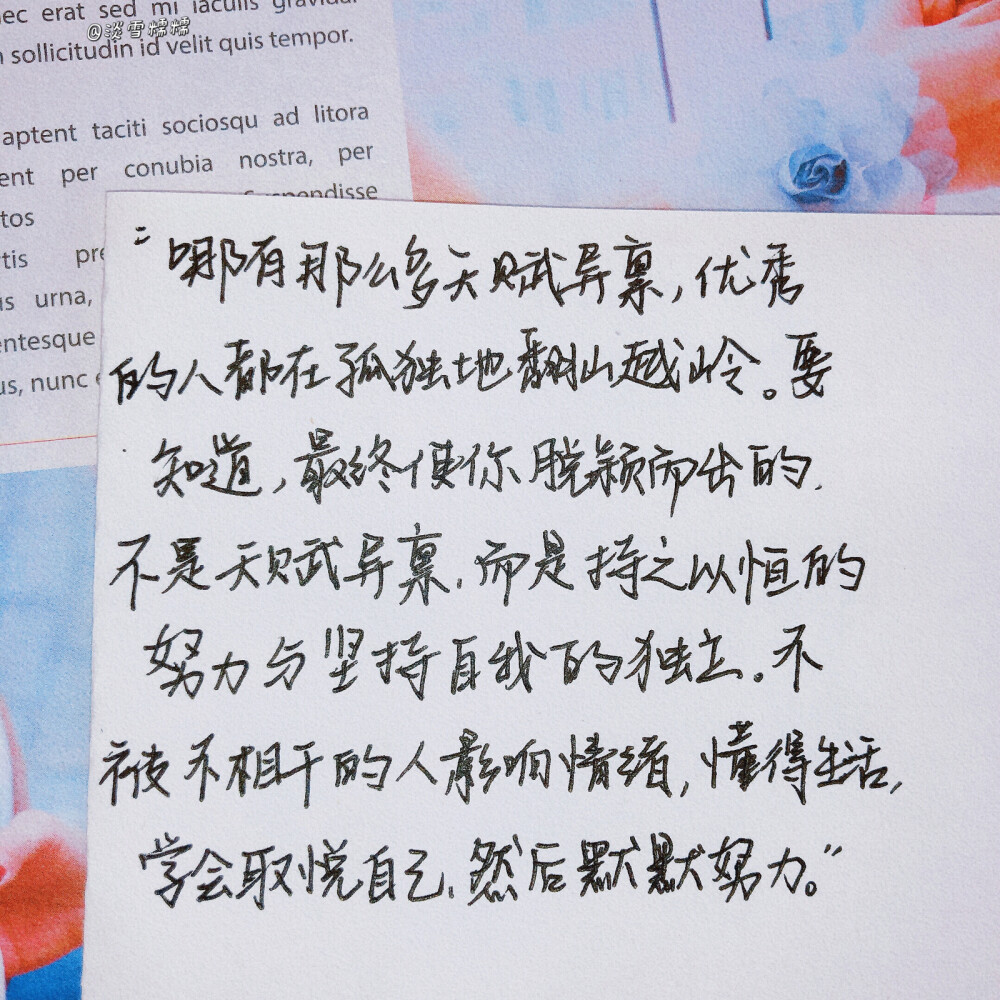 ec erat sed mi iaculis gravida
@淡雪糯糯
sollicitudin id velit quis tempor.
aptent taciti sociosqu ad litora
ent per conubia nostra, per
tos Suspendisse
tis pre
us urna,
entesque
us, nunc
“哪有那么多天赋异禀，优秀
的人都在孤独地翻山越岭。要
知道，最终使你脱颖而出的，
不是天赋异禀，而是持之以恒的
努力与坚持自我的独立。不
被不相干的人影响情绪，懂得生活，
学会取悦自己，然后默默努力。”